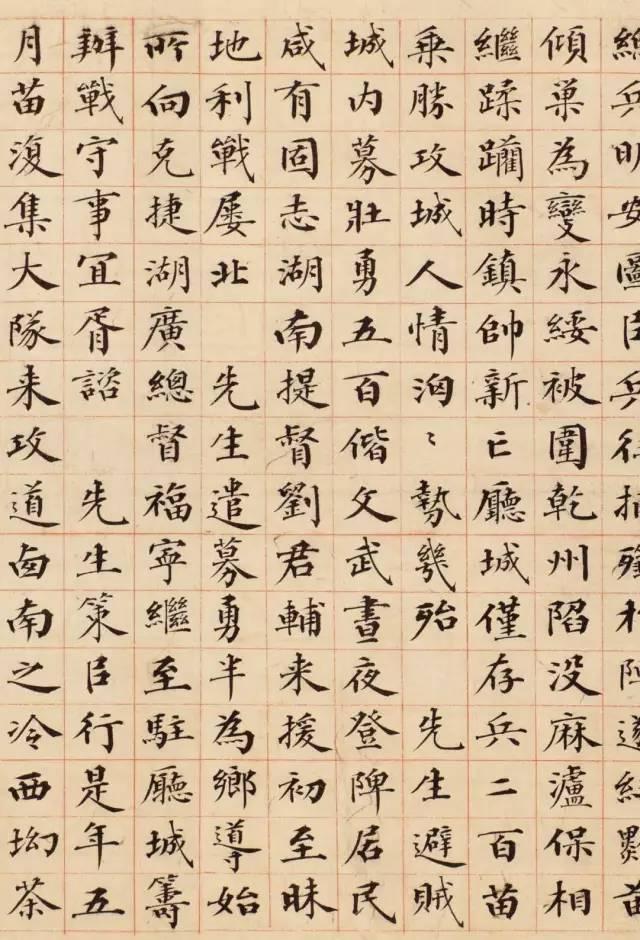 兵明安圖㠯兵
傾巢為變永綏被圍乾州陷没麻瀘保相
繼蹂躪時鎮帥新亡廳城僅存兵二百苗
乘勝攻城人情洶〻勢幾殆 先生避賊
城内募壯勇五百偕文武晝夜登陴居民
咸有固志湖南提督劉君輔来援初至昧
地利戰屡北 先生遣募勇半為鄉導始
所向克捷湖廣總督福寧繼至駐廳城籌
辦戰守事宜胥諮 先生策㠯行是年五
月苗復集大隊来攻道南之冷西坳茶